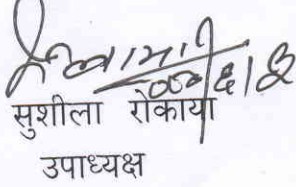 सुशीला रोकाया
उपाध्यक्ष